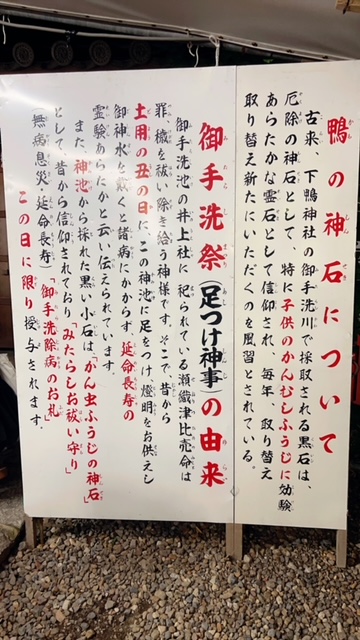 鴨の神石について
古来、下鴨神社の御手洗川で採取される黒石は、
厄除の神石として、特に子供のかんむしふうじに効験
あらたかな霊石として信仰され、毎年、取り替え
取り替え新たにいただくのを風習とされている。
御手洗祭(足つけ神事)の由来
御手洗池の井上社に祀られている瀬織津比売命は
罪、穢を祓い除き給う神様です。そこで昔から
土用の丑の日に、この神池に足をつけ燈明をお供えし
御神水を飲くと諸病にかからず、延命長寿の
霊験あらたかと云い伝えられています。
また、神池から採れた黒い小石は「かん虫ふうじの神石」
として昔から信仰されており「みたらしお祓い守り」
(無病息災・延命長寿)御手洗除病のお札」
この日に限り授与されます。